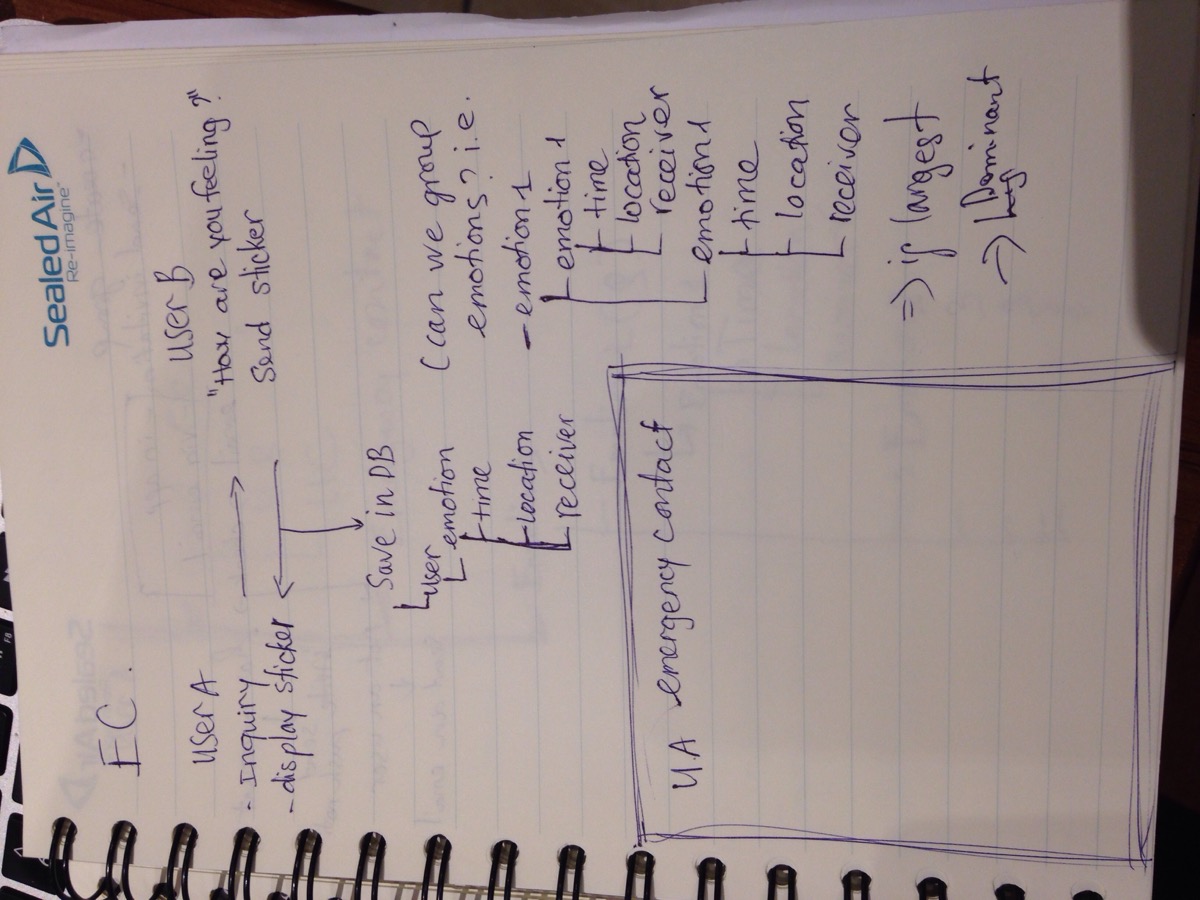 SealedAir
Re-imagine™
EC.
USER A
USER B
- Inquiry
"How are you feeling?"
- display sticker
Send sticker
Save in DB
user
emotion
time
location
receiver
(can we group
emotions? i.e.
- emotion 1
emotion 1
time
location
receiver
emotion 1
time
location
receiver
=> if largest
=> Dominant
U.A emergency contact
F8